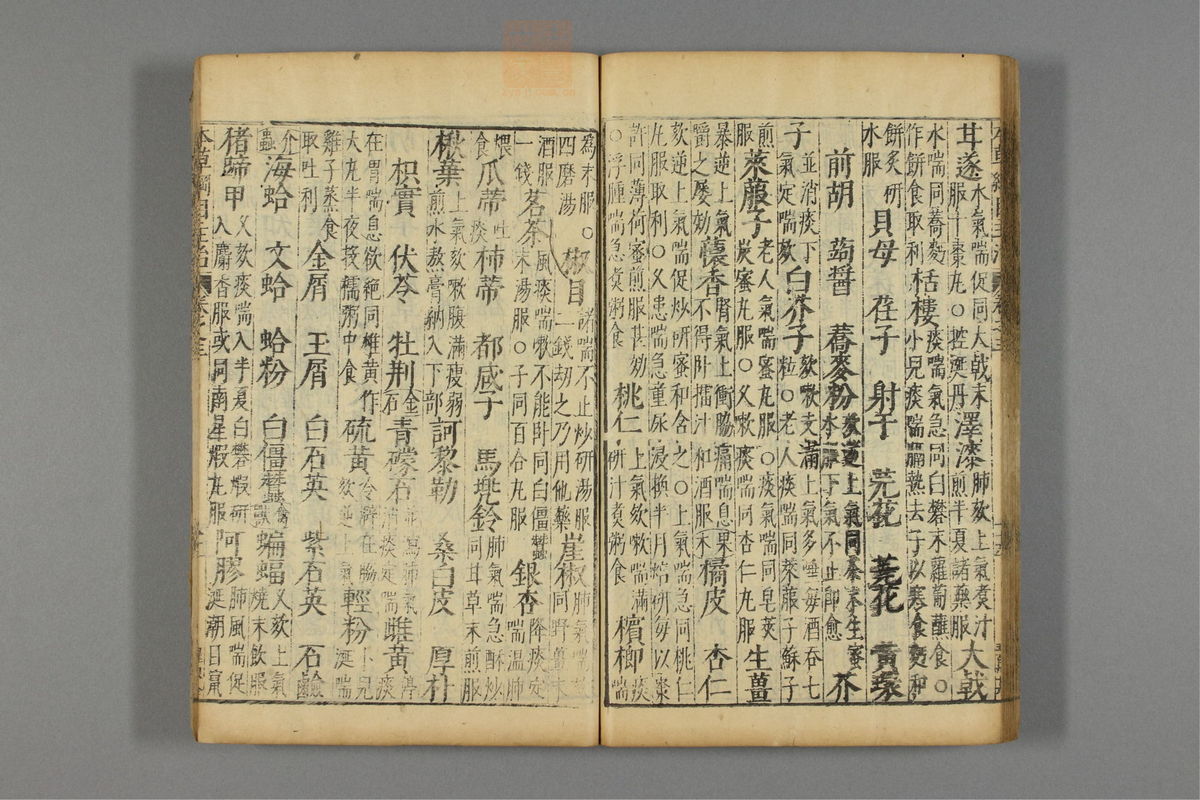 甘遂水氣喘促同大戟末服十棗丸○控涎丹澤漆肺欬上氣煮汁煎半夏諸藥服大戟
水喘同蕎麪作餅食取利栝樓痰喘氣急同白礬末蘿蔔蘸食○小兒痰喘膈熱去子以寒食麪和
餅炙研水服 貝母 荏子 射干 芫花 蕘花 黃環
前胡 蒟醬 蕎麥粉欬逆上氣同茶末生蜜水服下氣不止即愈芥
子並消痰下氣定喘欬白芥子欬嗽支滿上氣多唾每酒吞七粒○老人痰喘同萊菔子蘇子
煎服萊菔子老人氣喘蜜丸服○痰氣喘同皂莢炭蜜丸服○又嗽痰喘同杏仁丸服生薑
暴逆上氣嚼之屢效蘹香腎氣上衝脇痛喘息不得卧擂汁和酒服果橘皮 杏仁
欬逆上氣喘促炒研蜜和含之○上氣喘急同桃仁丸服取利○又患喘急童尿浸換半月焙研每以棗
許同薄荷蜜煎服甚效○浮腫喘急煮粥食桃仁上氣欬嗽喘滿研汁煮粥食檳榔痰喘
為末服○四磨湯 椒目諸喘不止炒研湯服二錢劫之乃用他藥崖椒肺氣喘欬同野薑末
酒服一錢茗茶風痰喘嗽不能卧同白僵蠶末湯服○子同百合丸服 銀杏降痰定喘溫肺
煨食瓜蒂吐痰柿蒂 都咸子 馬兜鈴肺氣喘急酥炒同甘草末煎服
楸葉上氣欬嗽腹滿瘦弱煎水熬膏納入下部訶黎勒 桑白皮 厚朴
枳實 茯苓 牡荆金石青礞石並瀉肺氣消痰定喘雌黃停痰
在胃喘息欲絕同雄黃作大丸半夜投糯粥中食硫黃冷澼在脇欬逆上氣輕粉小兒涎喘
雞子蒸食取吐利 金屑 玉屑 白石英 紫石英 石鹼
介蟲海蛤 文蛤 蛤粉 白僵蠶禽獸蝙蝠久欬上氣燒末飲服
猪蹄甲久欬痰喘入半夏白礬煆研入麝香服或同南星煆丸服阿膠肺風喘促涎潮目竄